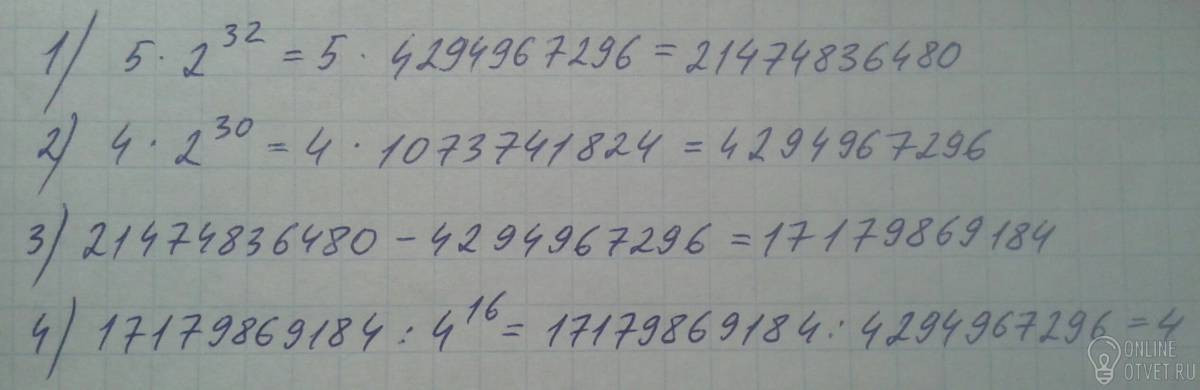 1) 5 · 2^32 = 5 · 4294967296 = 21474836480
2) 4 · 2^30 = 4 · 1073741824 = 4294967296
3) 21474836480 – 4294967296 = 17179869184
4) 17179869184 : 4^16 = 17179869184 : 4294967296 = 4
ONLINE
OTVET.RU